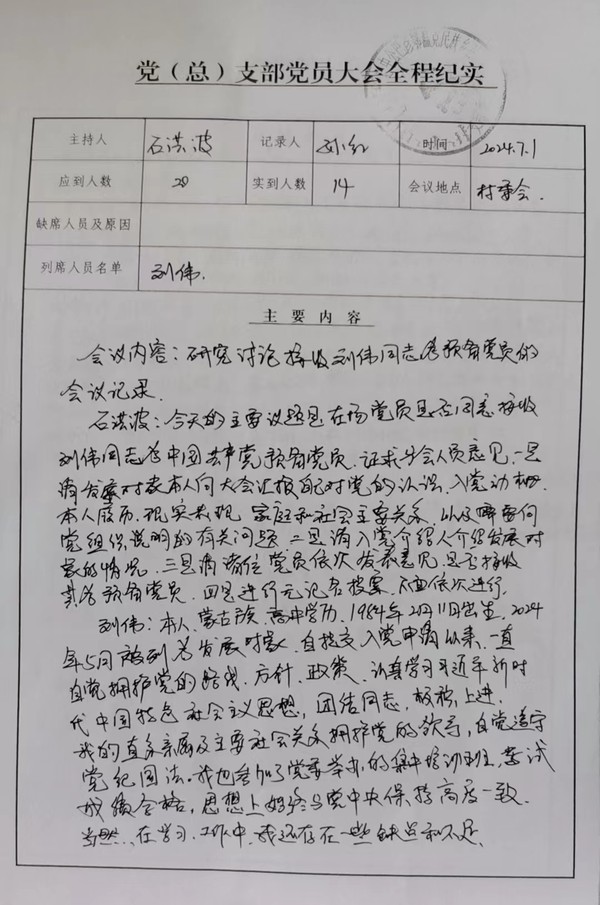 党（总）支部党员大会全程纪实
主持人 石洪波 记录人 刘红 时间 2024.7.1
应到人数 20 实到人数 14 会议地点 村委会.
缺席人员及原因
列席人员名单 刘伟.
主要内容
会议内容：研究讨论接收刘伟同志为预备党员的
会议记录.
石洪波：今天的主要议题是在场党员是否同志接收
刘伟同志为中国共产党预备党员.证求与会人员意见.一是
请发展对象本人向大会汇报自己对党的认识、入党动机.
本人履历、现实表现、家庭和社会主要关系.以及需要向
党组织说明的有关问题 二是请入党介绍人介绍发展对
象的情况.三是请诸位党员依次发表意见.是否接收
其为预备党员.四是进行无记名投票.下面依次进行.
刘伟：本人.蒙古族.高中学历.1984年2月11日出生.2024
年5月被列为发展对象.自提交入党申请以来.一直
自觉拥护党的路线、方针、政策.认真学习习近平新时
代中国特色社会主义思想，团结同志，积极上进.
我的直系亲属及主要社会关系拥护党的领导，自觉遵守
党纪国法.我也参加了党委举办的集中培训班，考试
成绩合格，思想上始终与党中央保持高度一致.
当然.在学习、工作中.我还存在一些缺点和不足.